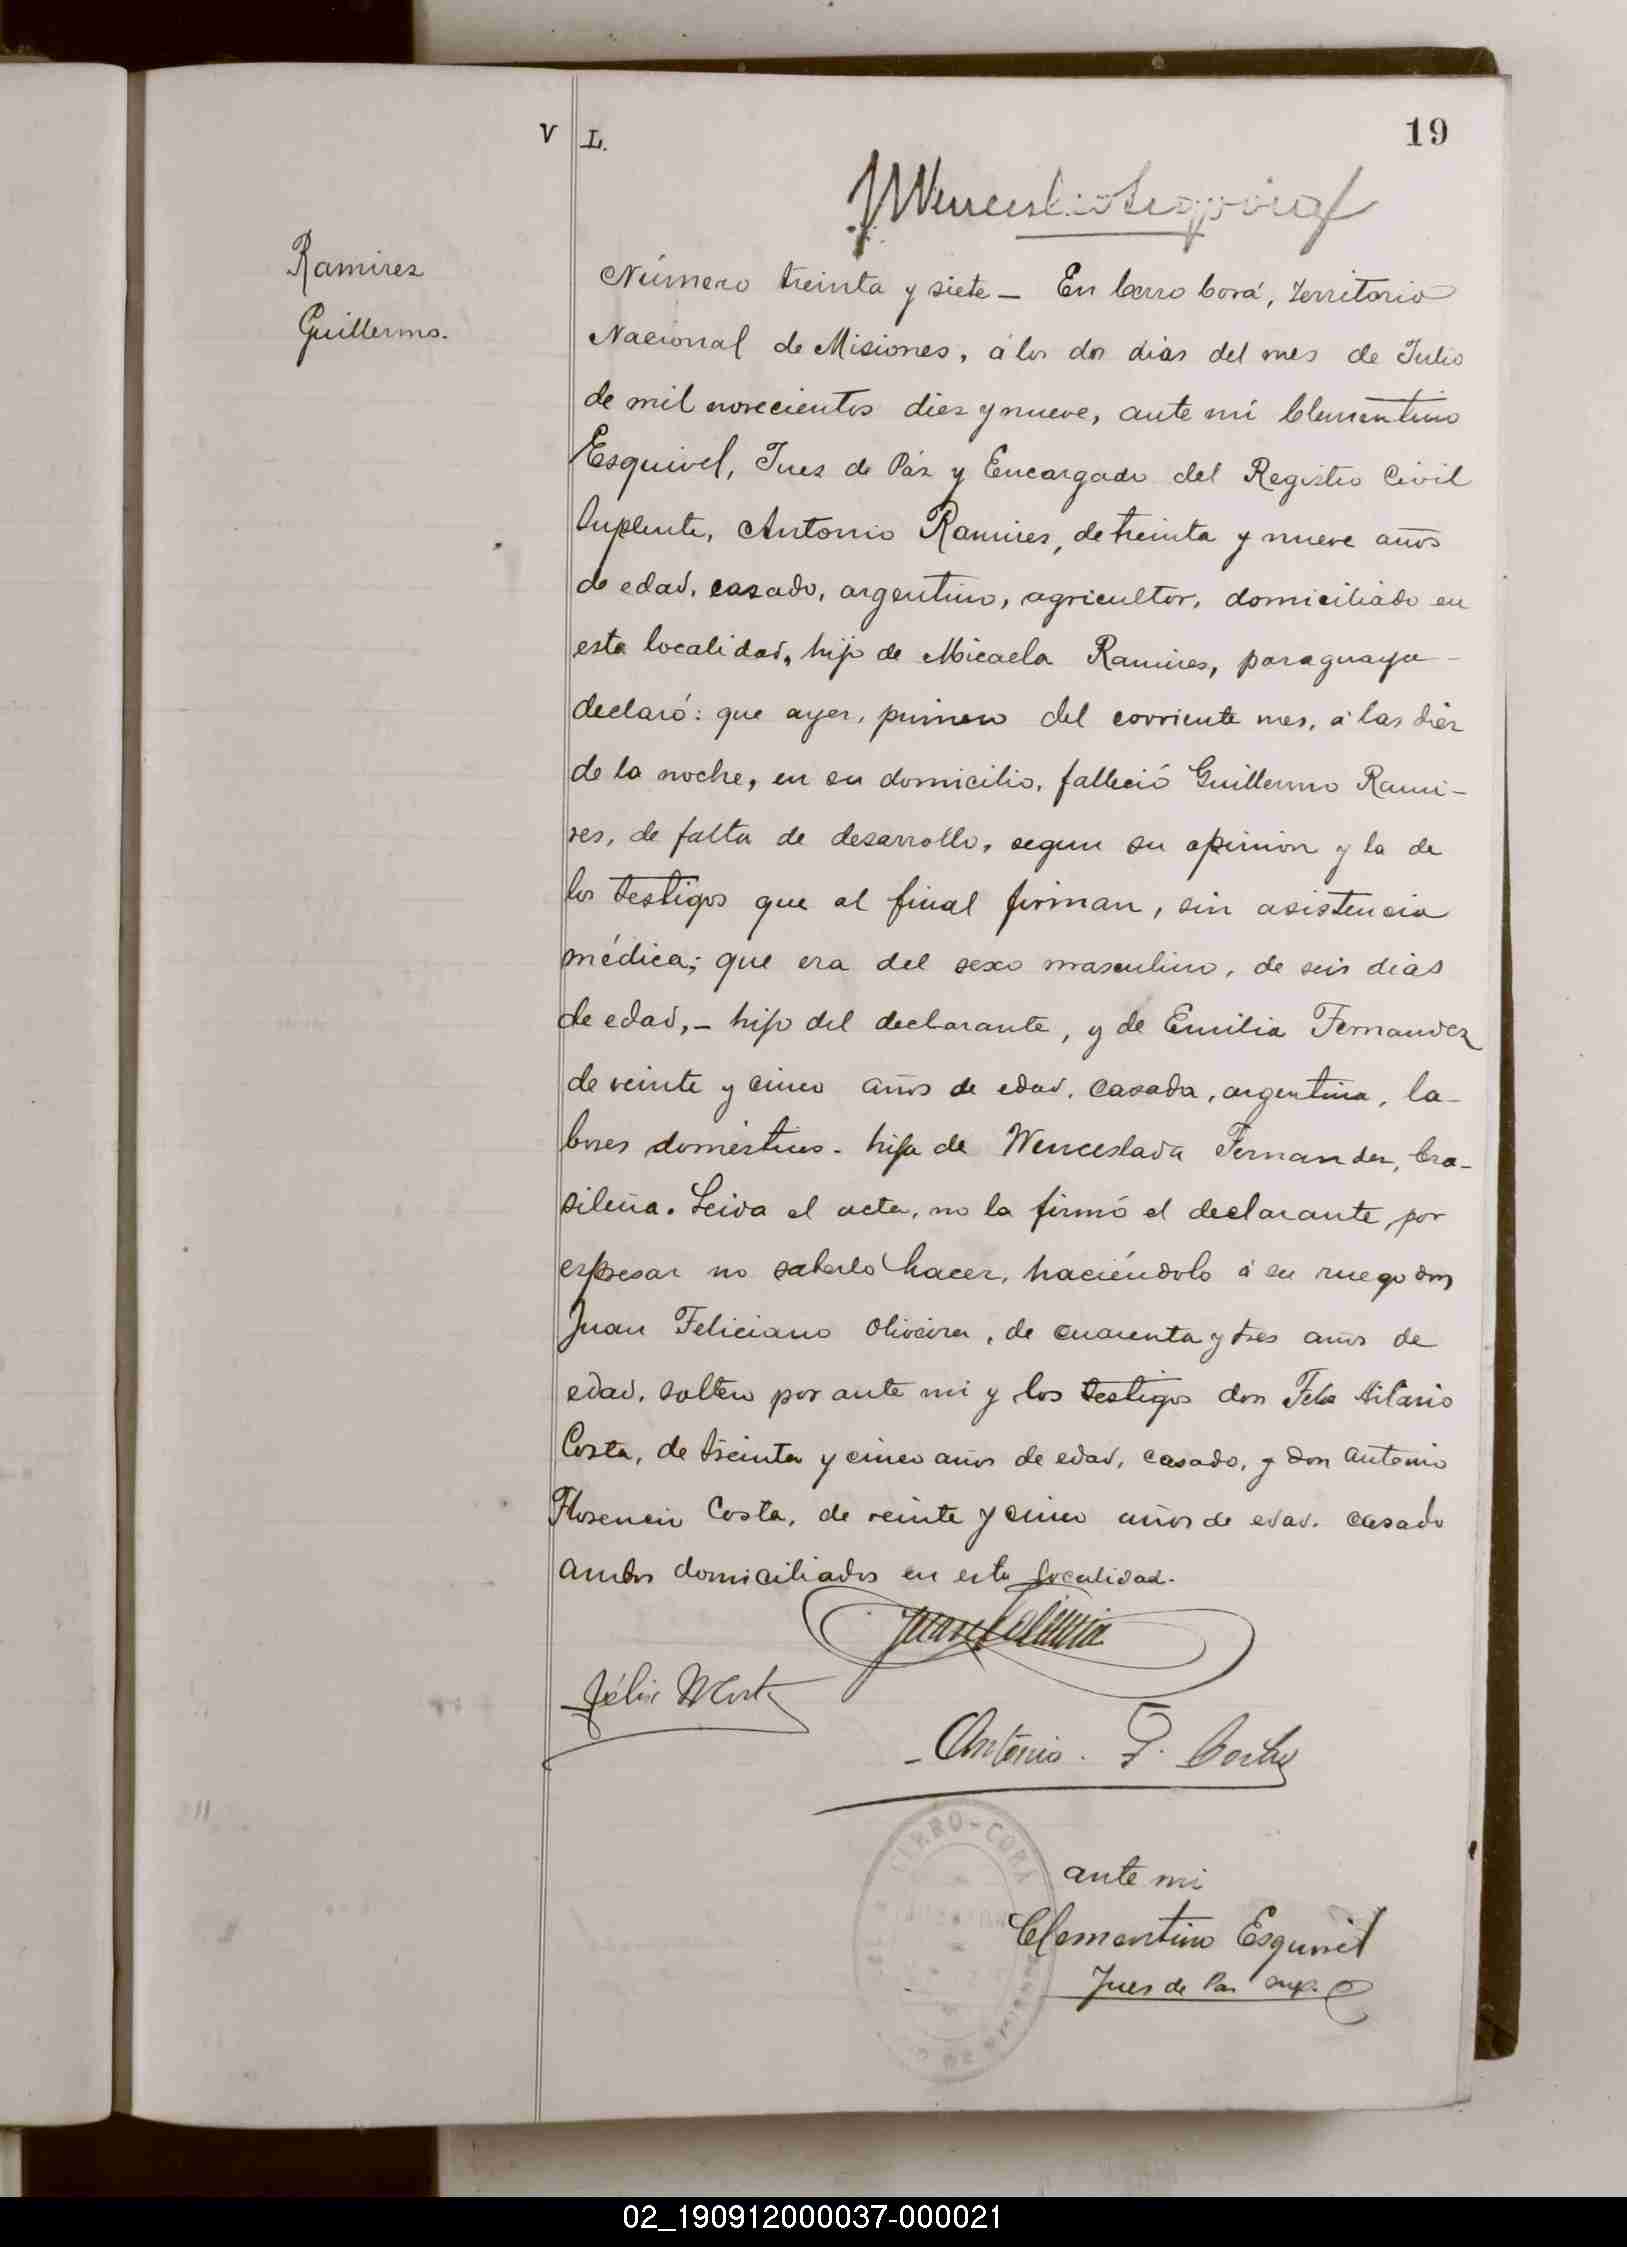 V L.
19
Ramirez
Guillermo.
Número treinta y siete — En Cerro Corá, Territorio
Nacional de Misiones, á los dos dias del mes de Julio
de mil novecientos diez y nueve, ante mí Clementino
Esquivel, Juez de Páz y Encargado del Registro Civil
Suplente, Antonio Ramires, de treinta y nueve años
de edad, casado, argentino, agricultor, domiciliado en
esta localidad, hijo de Micaela Ramires, paraguaya —
declaró: que ayer, primero del corriente mes, á las diez
de la noche, en su domicilio, falleció Guillermo Rami-
res, de falta de desarrollo, segun su opinion y la de
los testigos que al final firman, sin asistencia
médica; que era del sexo masculino, de seis dias
de edad, — hijo del declarante, y de Emilia Fernandez
de veinte y cinco años de edad, casada, argentina, la-
bores domésticos. hija de Wenceslada Fernandez, bra-
sileña. Leida el acta, no la firmó el declarante, por
expresar no saberlo hacer, haciéndolo á su ruego don
Juan Feliciano Oliveira, de cuarenta y tres años de
edad, soltero por ante mi y los testigos don Hilario
Costa, de treinta y cinco años de edad, casado, y don Antonio
Florencio Costa, de veinte y cinco años de edad. casado
ambos domiciliados en esta localidad.
Félix
Antonio. F. Costa
CERRO-CORÁ
ante mi
Clementino Esquivel
Jues de Paz sup.
02_190912000037-000021